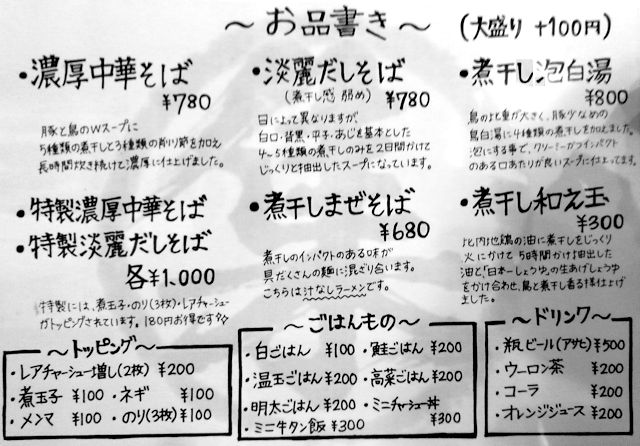 ～お品書き～ (大盛り +100円)
・濃厚中華そば
¥780
豚と鳥のWスープに
5種類の煮干しと3種類の削り節を加え
長時間炊き続けて濃厚に仕上げました。
・淡麗だしそば
(煮干し感 弱め) ¥780
日によって異なりますが
白口・背黒・平子・あじを基本とした
4~5種類の煮干しのみを2日間かけて
じっくりと抽出したスープになっています。
・煮干し泡白湯
¥800
鳥の比重が大きく、豚少なめの
鳥白湯に4種類の煮干しを加えました。
泡にする事で、クリーミーかつインパクト
のある口あたりが良いスープに仕上ってます。
・特製濃厚中華そば
・特製淡麗だしそば
各¥1,000
特製には、煮玉子・のり(3枚)・レアチャーシュー
がトッピングされています。180円お得です☆
・煮干しまぜそば
¥680
煮干しのインパクトのある味が
具だくさんの麺に混ざり合います。
こちらは汁なしラーメンです。
・煮干し和え玉
¥300
比内地鶏の油に煮干しをじっくり
火にかけて5時間かけ抽出した
油と「日本一しょうゆ」の生あげしょうゆ
をかけ合わせ、鳥と煮干し香る様仕上げ
ました。
～トッピング～
・レアチャーシュー増し(2枚) ¥200
・煮玉子 ¥100 ・ネギ ¥100
・メンマ ¥100 ・のり(3枚) ¥100
～ごはんもの～
・白ごはん ¥100 ・鮭ごはん ¥200
・温玉ごはん ¥200 ・高菜ごはん ¥200
・明太ごはん ¥200 ・ミニチャーシュー丼
・ミニ牛タン飯 ¥300 ¥300
～ドリンク～
・瓶ビール(アサヒ) ¥500
・ウーロン茶 ¥200
・コーラ ¥200
・オレンジジュース ¥200